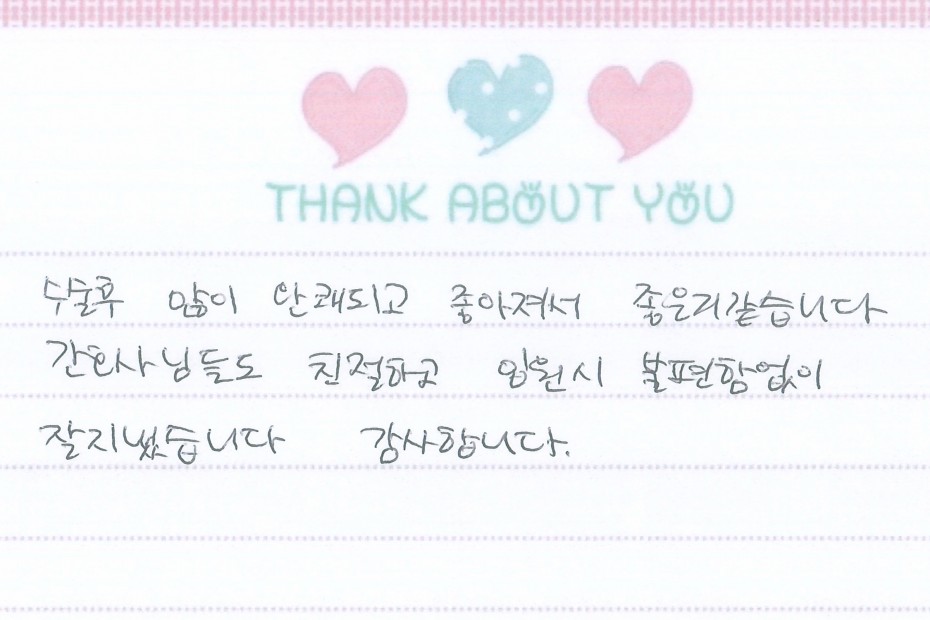 THANK ABOUT YOU
수술후 많이 안쾌되고 좋아져서 좋은거같습니다
간호사님들도 친절하고 입원시 불편함없이
잘지냈습니다 감사합니다.